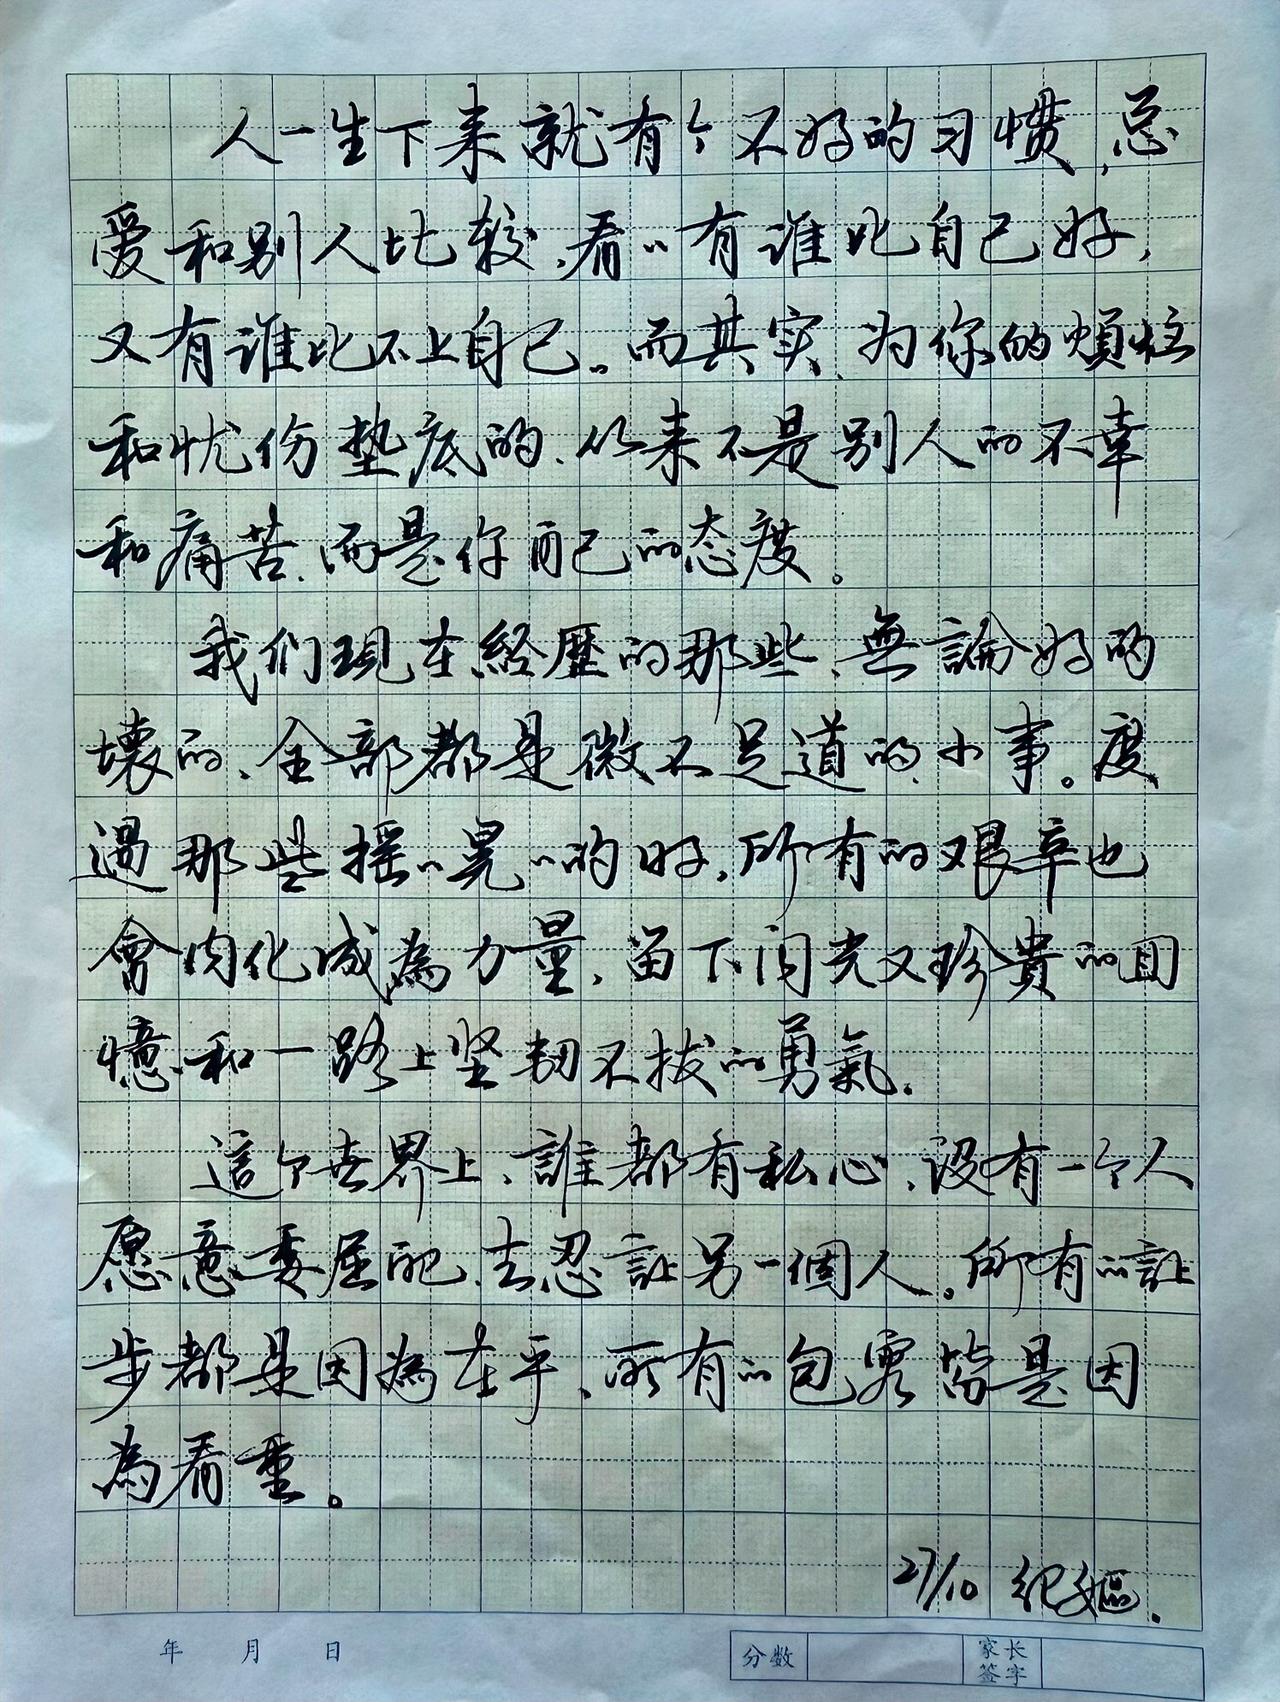 人一生下来就有个不好的习惯,总
爱和别人比较,看〃有谁比自己好,
又有谁比不上自己。而其实,为你的烦恼
和忧伤垫底的,从来不是别人的不幸
和痛苦,而是你自己的态度。
我们现在經歷的那些,無論好的
壞的,全部都是微不足道的小事。度
過那些摇〃晃〃的时,所有的艰辛也
會内化成為力量,留下闪光又珍貴的回
憶和一路上坚韧不拔的勇氣。
這个世界上,誰都有私心,没有一个人
愿意委屈己,去忍讓另一個人。所有的讓
步都是因為在乎,所有的包容皆是因
為看重。
27/10 纪嫗.
年 月 日
分数
家长
签字